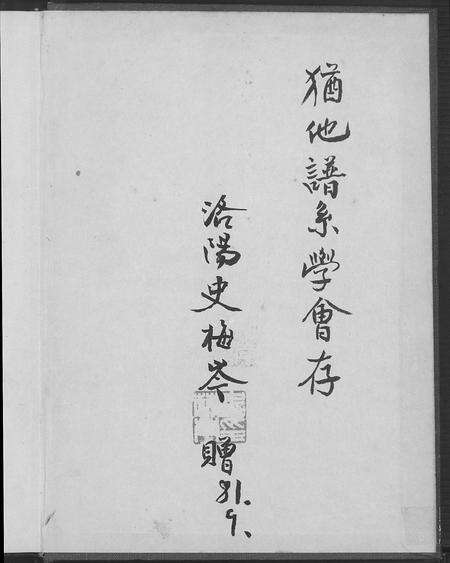 猶他譜系學會存
洛陽史梅岑 贈 81.9.